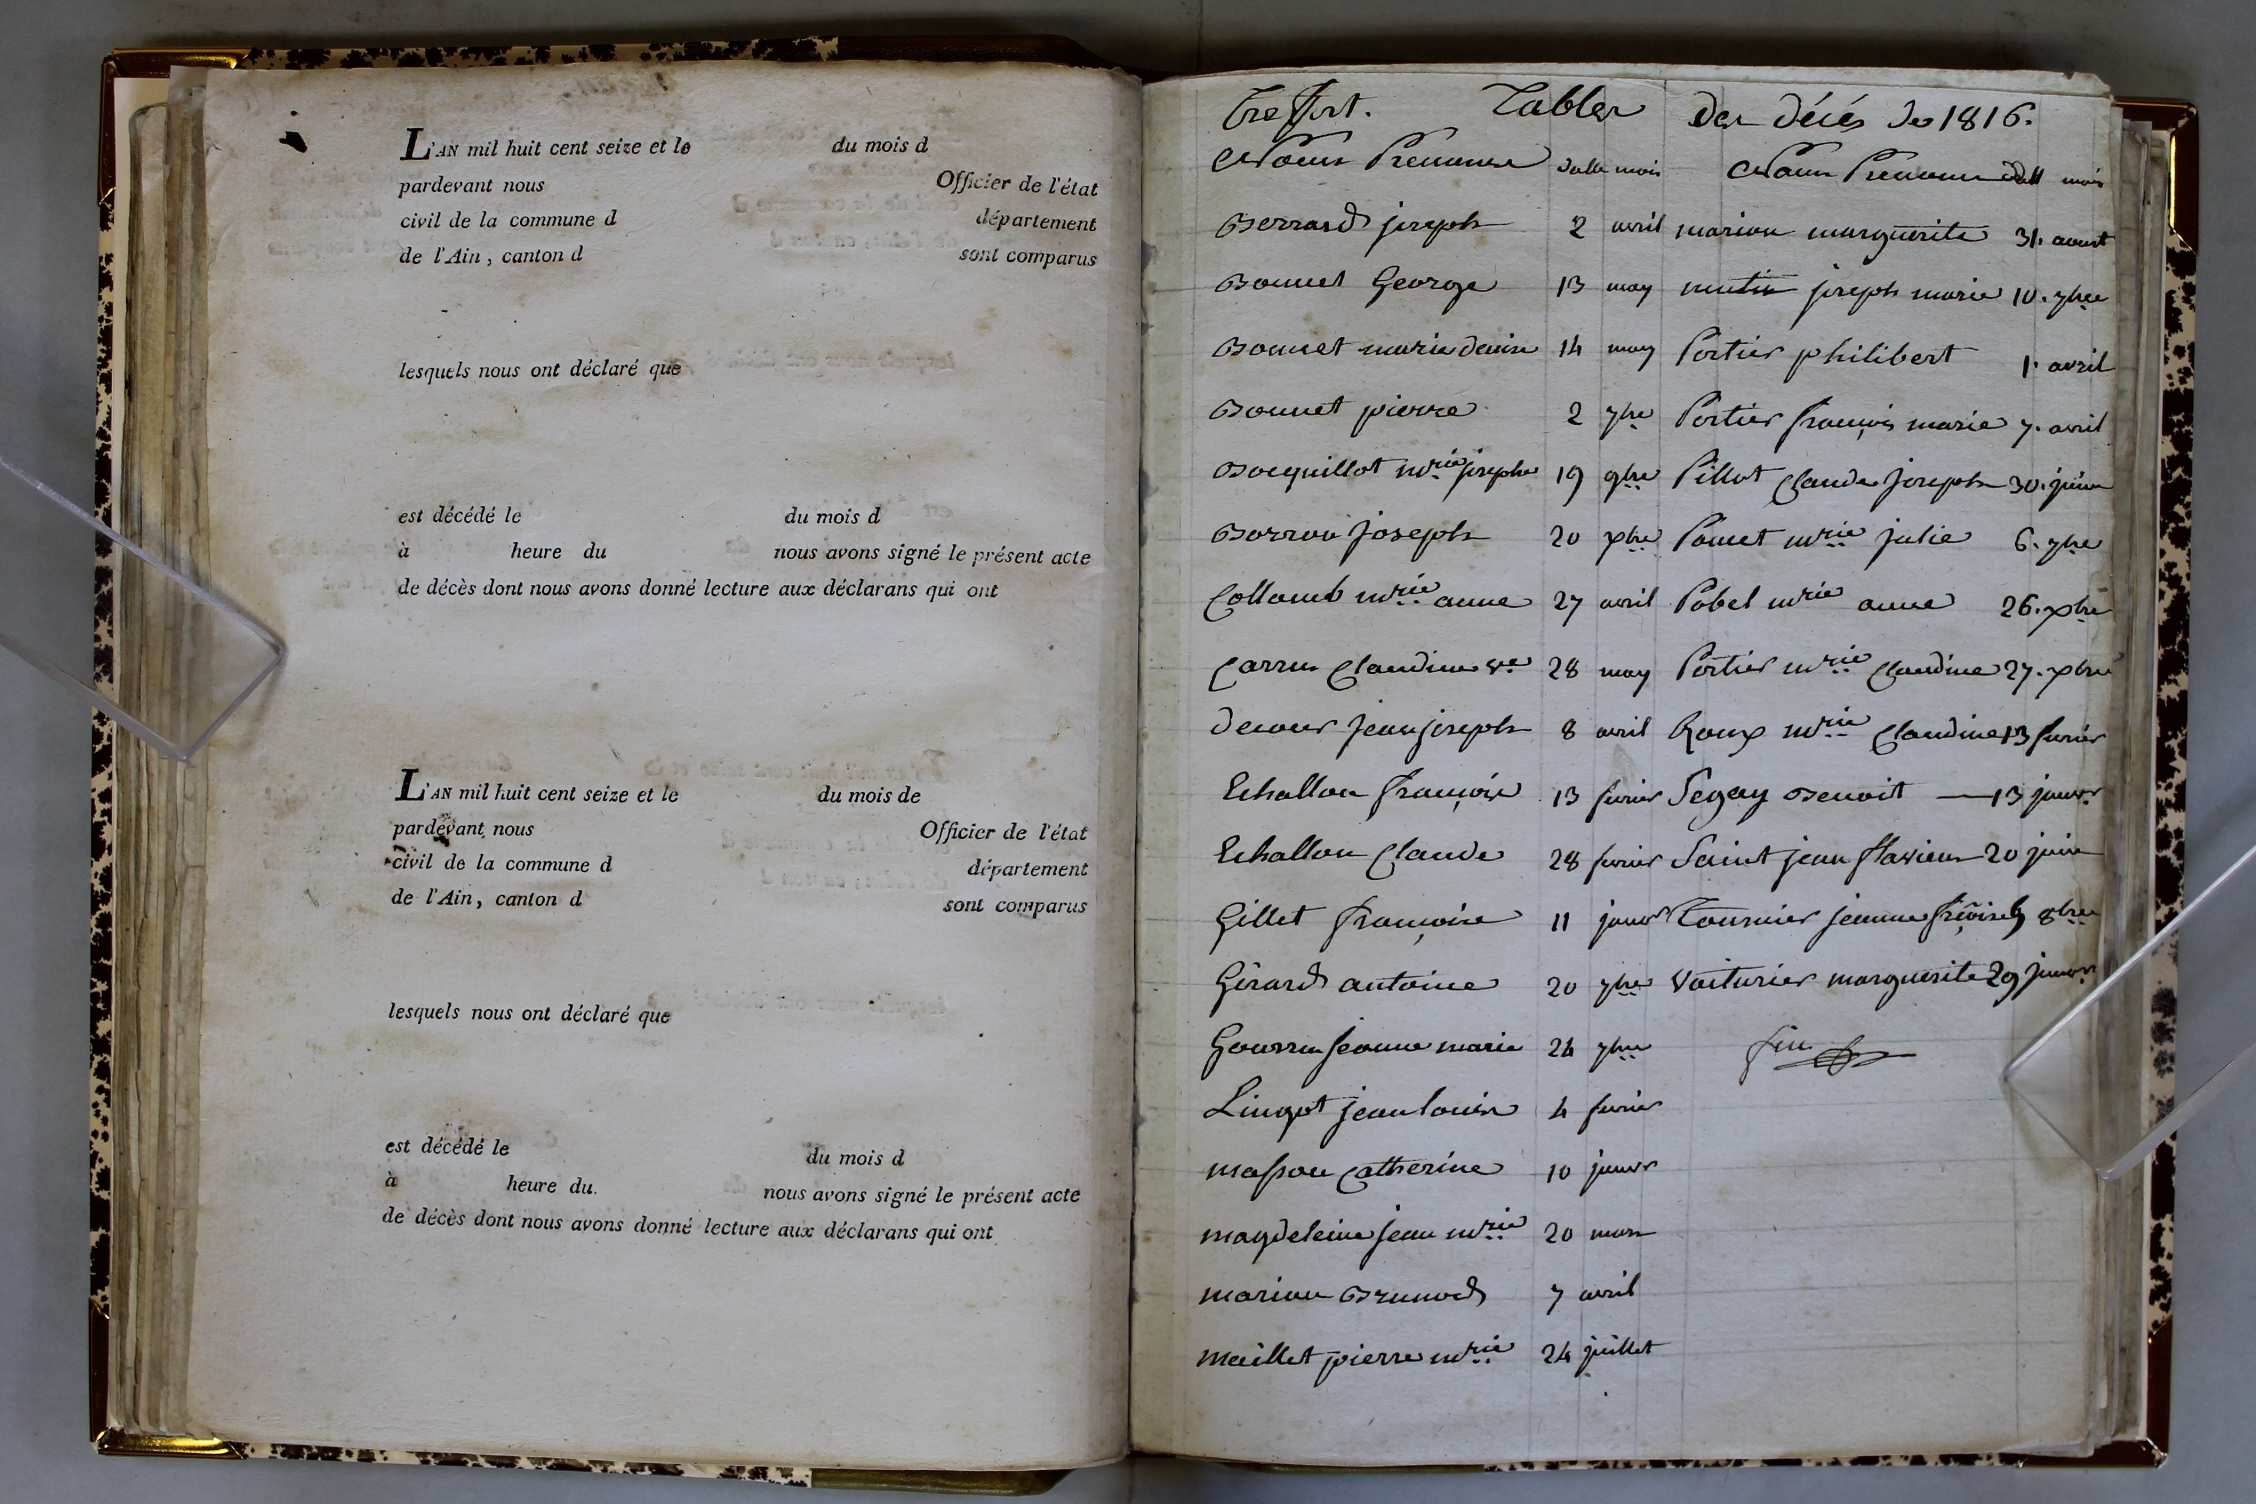 L'AN mil huit cent seize et le du mois d
pardevant nous Officier de l'état
civil de la commune d département
de l'Ain, canton d sont comparus
lesquels nous ont déclaré que
est décédé le du mois d
à heure du nous avons signé le présent acte
de décès dont nous avons donné lecture aux déclarans qui ont
L'AN mil huit cent seize et le du mois de
pardevant nous Officier de l'état
civil de la commune d département
de l'Ain, canton d sont comparus
lesquels nous ont déclaré que
est décédé le du mois d
à heure du. nous avons signé le présent acte
de décès dont nous avons donné lecture aux déclarans qui ont
Treffort. Tables des décés de 1816.
Noms Prenoms datte mois
Berrard joseph 2 avril
Bonnet George 13 may
Bonnet marie denise 14 may
Bonnet pierre 2 7bre
Bocquillot mrie josephe 19 9bre
Borron joseph 20 xbre
Collomb mrie anne 27 avril
Carru Claudine ve 28 may
Decour jean joseph 8 avril
Echallon françois 13 fevrier
Echallon Claude 28 fevrier
Gillet françoise 11 janvr
Girard antoine 20 7bre
Gourru jeanne marie 24 7bre
Lingot jean louis 4 fevrier
Masson Catherine 10 janvr
magdeleine jean mrie 20 mars
marion Brunod 7 avril
Maillet pierre mrie 24 juillet
Noms Prenoms datt mois
marion marguerite 31. aoust
mutin joseph marie 10. 7bre
Portier philibert 1. avril
Portier françois marie 7. avril
Pillot Claude joseph 30. juin
Pomet mrie julie 6. 7bre
Pobel mrie anne 26. xbre
Portier mrie Claudine 27. xbre
Roux mrie Claudine 13 fevrier
Segay Benoit — 13 janvr
Saint jean flavien 20 juin
Tournier jeanne frçoise 9 8bre
Voiturier marguerite 29 janvr
fin